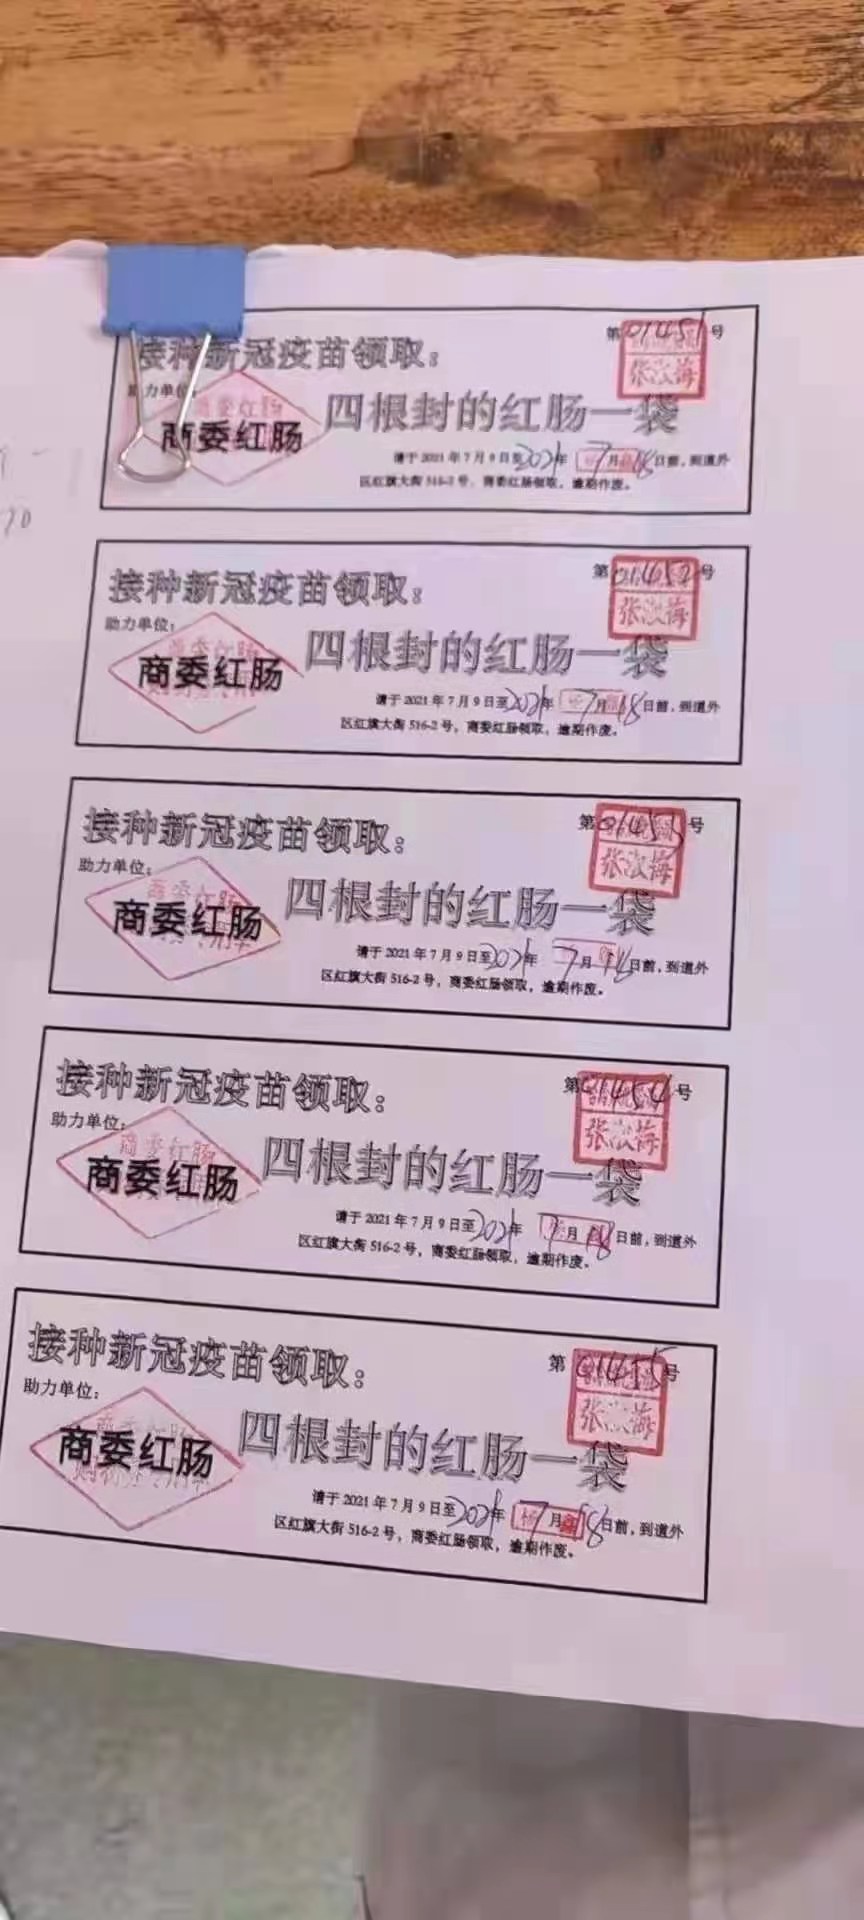 接种新冠疫苗领取：
第01451号
张淑梅
商委红肠
四根封的红肠一袋
请于2021年7月9日至2021年7月18日前，到道外
区红旗大街516-2号，商委红肠领取，逾期作废。
接种新冠疫苗领取：
第01452号
张淑梅
助力单位：
商委红肠
四根封的红肠一袋
请于2021年7月9日至2021年7月18日前，到道外
区红旗大街516-2号，商委红肠领取，逾期作废。
接种新冠疫苗领取：
第01453号
张淑梅
助力单位：
商委红肠
四根封的红肠一袋
请于2021年7月9日至2021年7月 日前，到道外
区红旗大街516-2号，商委红肠领取，逾期作废。
接种新冠疫苗领取：
第01454号
张淑梅
助力单位：
商委红肠
四根封的红肠一袋
请于2021年7月9日至2021年7月18日前，到道外
区红旗大街516-2号，商委红肠领取，逾期作废。
接种新冠疫苗领取：
第01455号
张淑梅
助力单位：
商委红肠
四根封的红肠一袋
请于2021年7月9日至2021年7月18日前，到道外
区红旗大街516-2号，商委红肠领取，逾期作废。